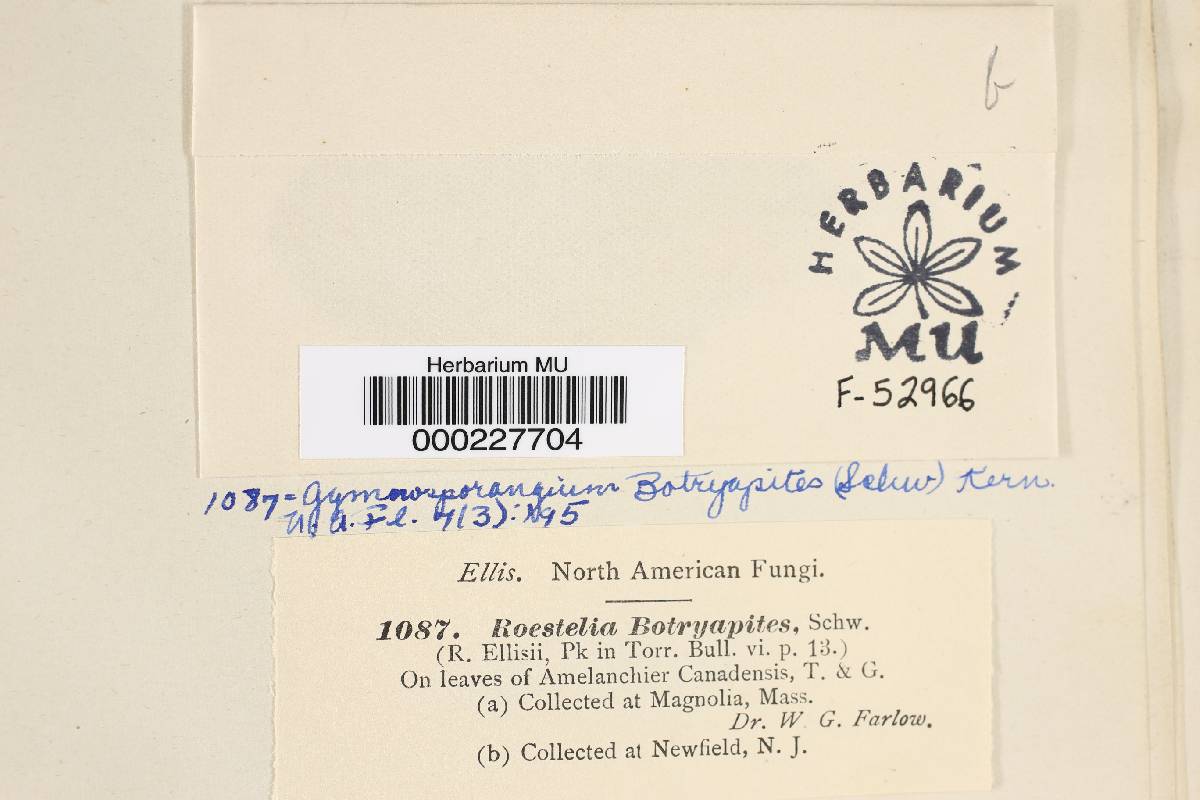 b
HERBARIUM
MU
F-52966
Herbarium MU
000227704
1087= Gymnosporangium Botryapites (Schw) Kern.
N. A. Fl. 7(3): 195
Ellis. North American Fungi.
1087. Roestelia Botryapites, Schw.
(R. Ellisii, Pk in Torr. Bull. vi. p. 13.)
On leaves of Amelanchier Canadensis, T. & G.
(a) Collected at Magnolia, Mass.
Dr. W. G. Farlow.
(b) Collected at Newfield, N. J.